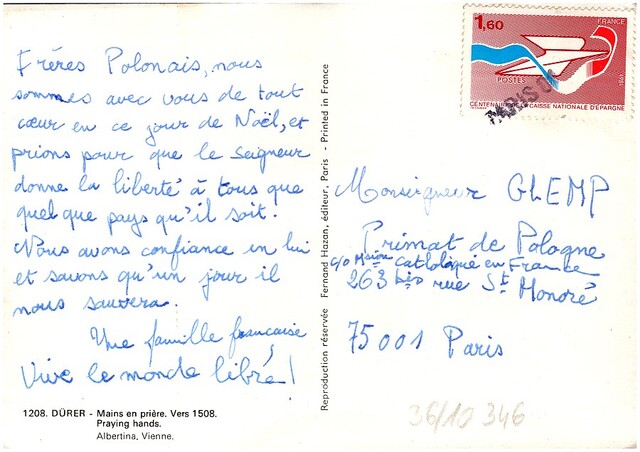 Frères Polonais, nous
sommes avec vous de tout
cœur en ce jour de Noël, et
prions pour que le Seigneur
donne la liberté à tous que
quel que pays qu'il soit.
Nous avons confiance en lui
et savons qu'un jour il
nous sauvera.
Une famille francaise
Vive le monde libre!
1208. DÜRER - Mains en prière. Vers 1508.
Praying hands.
Albertina, Vienne.
Reproduction réservée Fernand Hazan, éditeur, Paris - Printed in France
1,60
FRANCE
POSTES
CENTENAIRE DE LA CAISSE NATIONALE D'ÉPARGNE
PARIS
Monseigneur GLEMP
Primat de Pologne
c/o Mission Catholique en France
263 bis rue St Honoré
75001 Paris
36/10 346